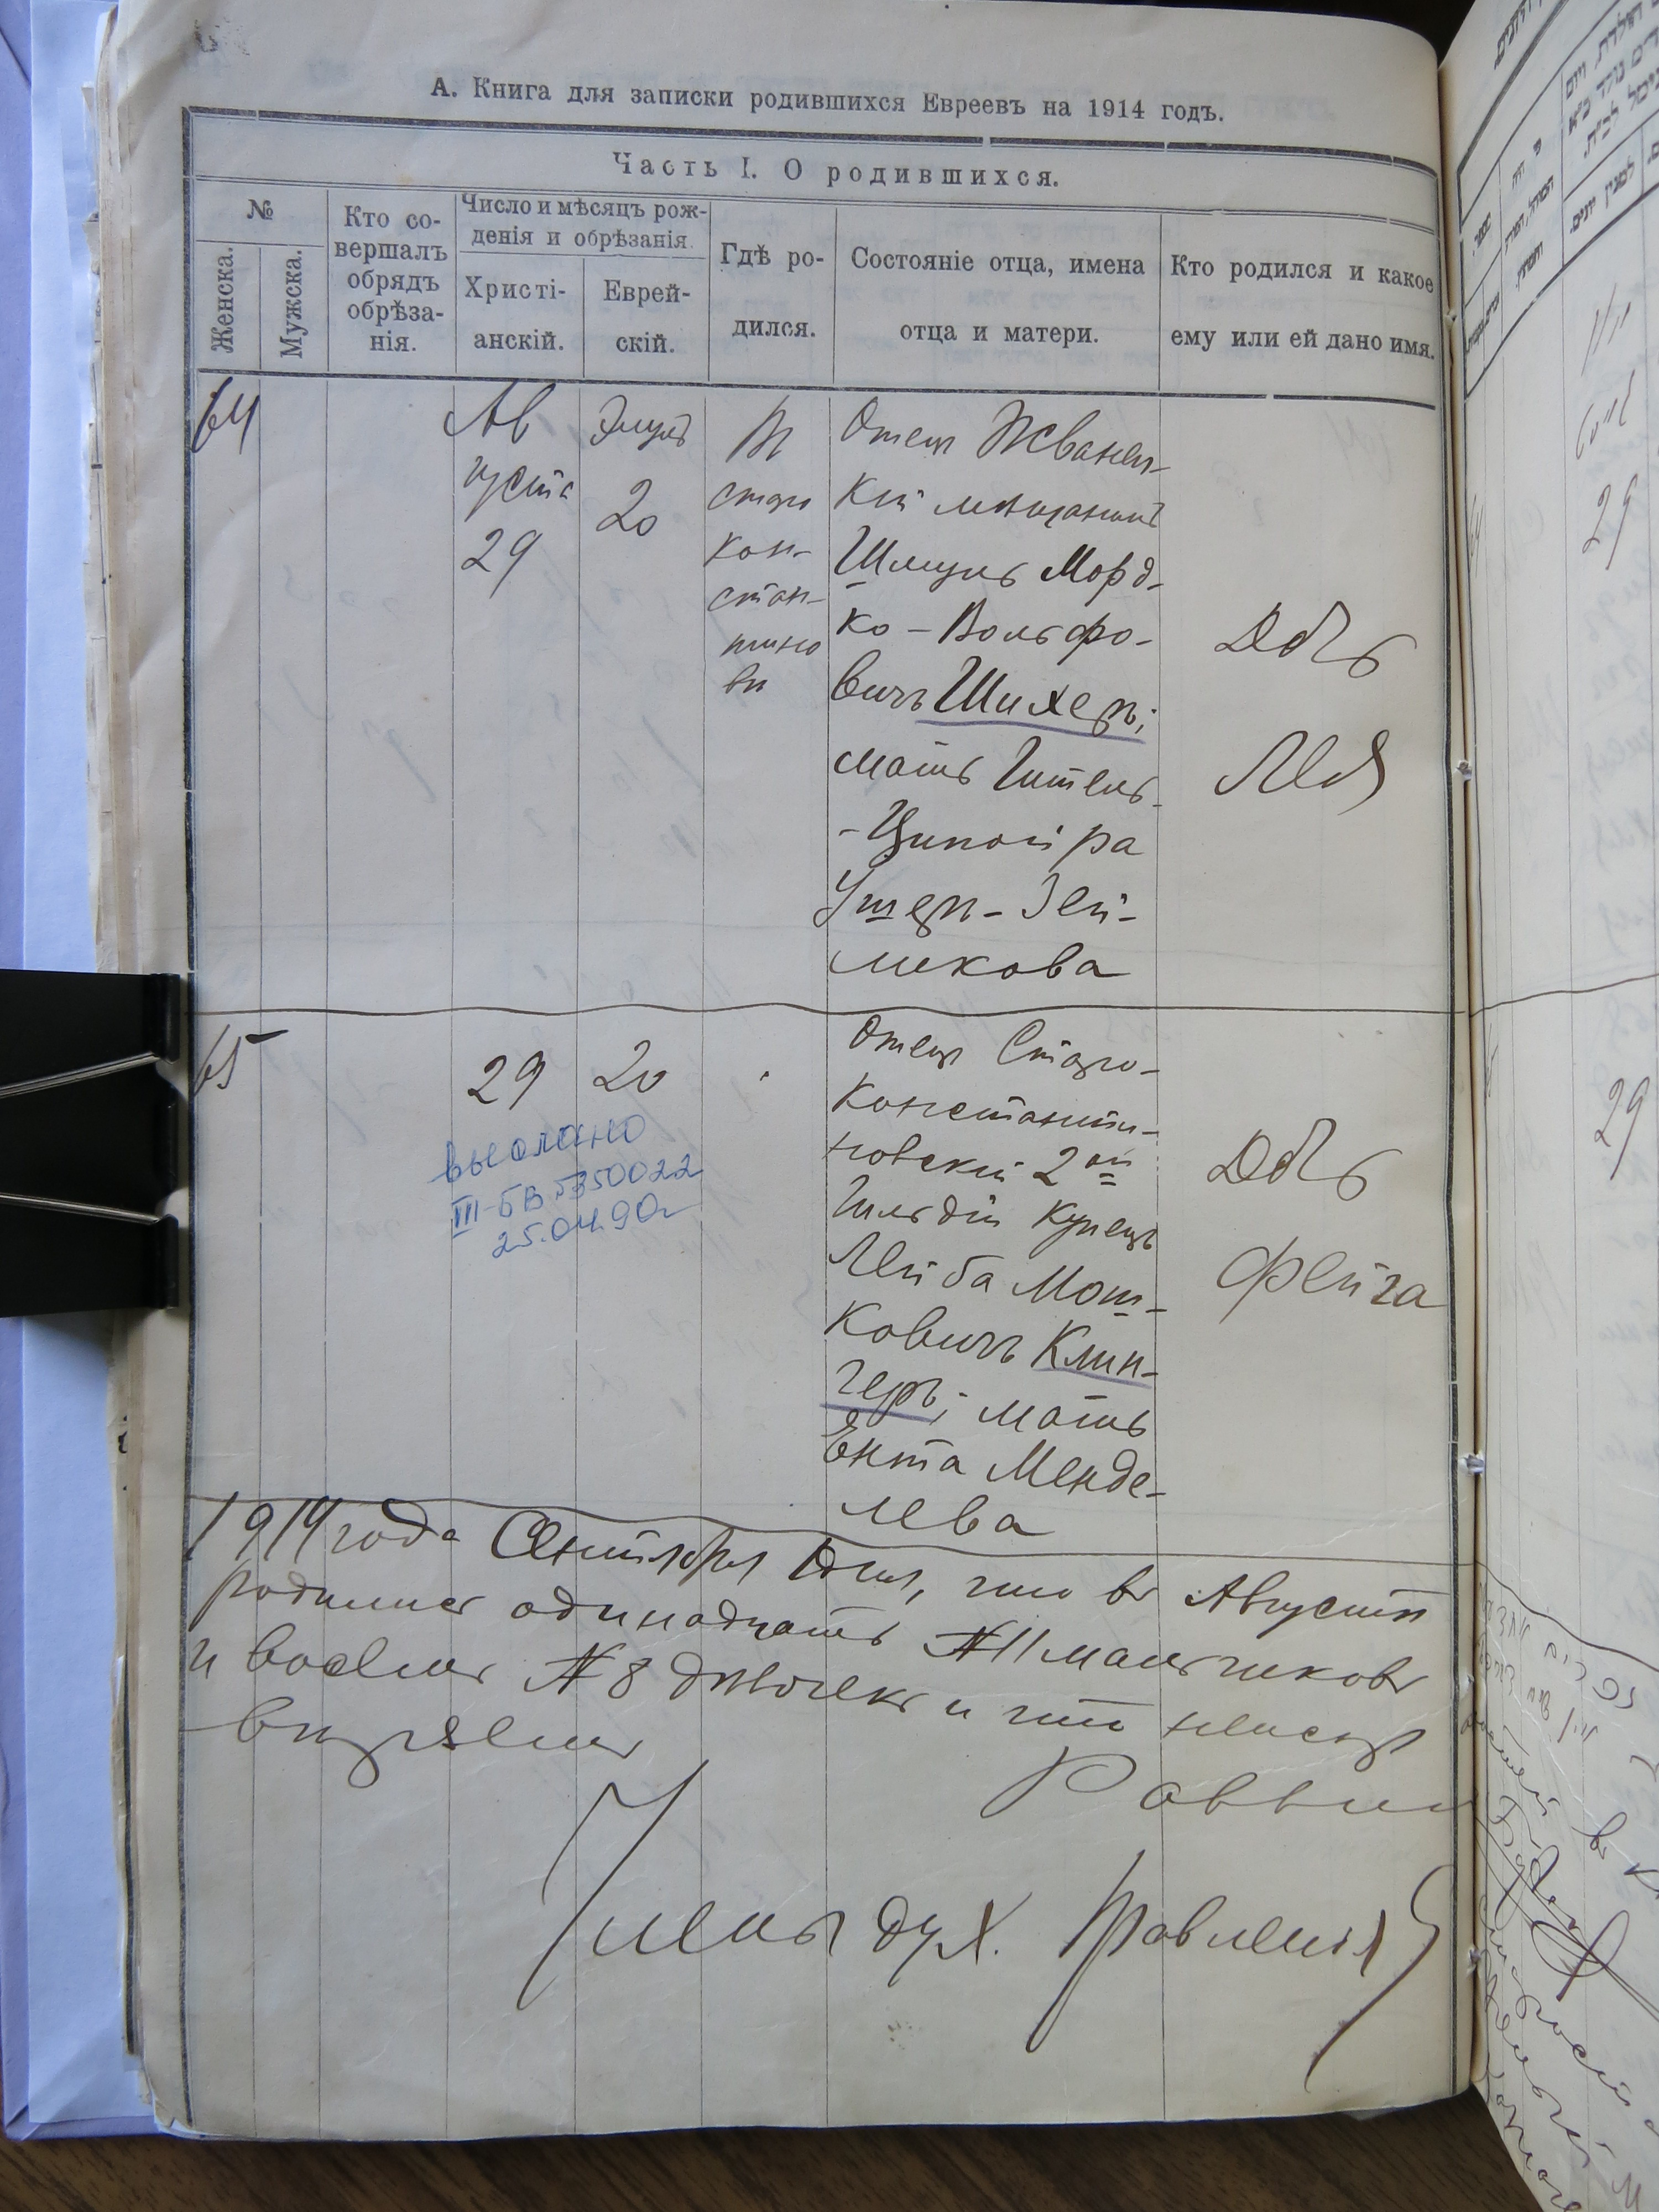 А. Книга для записки родившихся Евреевъ на 1914 годъ.
Часть I. О родившихся.
№
Женска.
Мужска.
Кто со-
вершалъ
обрядъ
обрѣза-
нія.
Число и мѣсяцъ рож-
денія и обрѣзанія.
Христі-
анскій.
Еврей-
скій.
Гдѣ ро-
дился.
Состояніе отца, имена
отца и матери.
Кто родился и какое
ему или ей дано имя.
64
Ав
густа
29
Элулъ
20
Въ
старо
кон-
стан-
тино
вѣ
Отец Жванец-
кій мѣщанинъ
Шмуль Морд-
ко-Вольфо-
вичъ Шихеръ;
мать Гитель-
-Ципойра
Ушеръ-Зей-
ликова
Дочь
Лея
65
29
20
выслано
III-БВ №350022
25.04.90г
Отецъ Старо-
константи-
новскій 2ой
гильдіи купецъ
Лейба Мош-
ковичъ Клин-
геръ; мать
Ента Менде-
лева
Дочь
Фейга
1914 года Сентября 1 дня, что въ Августѣ
родились одинадцать №11 мальчиковъ
и восемь №8 дѣвочекъ и что
Раввин
Члены дух. Правленія
29
29